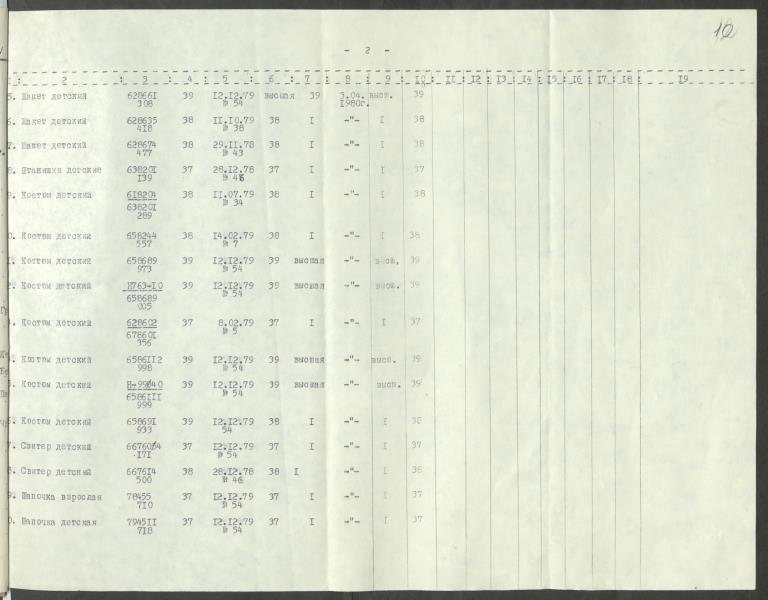 12
- 2 -
: 2 : 3 : 4 : 5 : 6 : 7 : 8 : 9 : 10 : 11 : 12 : 13 : 14 : 15 : 16 : 17 : 18 : 19
5. Жакет детский 628661 39 12.12.79 высшая 39 3.04. высш. 39
308 № 54 1980г.
6. Жакет детский 628635 38 11.10.79 38 I -"- I 38
418 № 38
7. Жакет детский 628674 38 29.11.78 38 I -"- I 38
477 № 43
8. Штанишки детские 638201 37 28.12.78 37 I -"- I 37
139 № 46
9. Костюм детский 618204 38 11.07.79 38 I -"- I 38
638201 № 34
289
0. Костюм детский 658244 38 14.02.79 38 I -"- I 38
557 № 7
1. Костюм детский 658689 39 12.12.79 39 высшая -"- высш. 39
973 № 54
2. Костюм детский Н763-10 39 12.12.79 39 высшая -"- высш. 39
658689 № 54
005
Костюм детский 628602 37 8.02.79 37 I -"- I 37
678601 № 5
356
Костюм детский 6586112 39 12.12.79 39 высшая -"- высш. 39
998 № 54
5. Костюм детский 39 12.12.79 39 высшая -"- высш. 39
6586111 № 54
999
6. Костюм детский 658691 39 12.12.79 38 I -"- I 38
933 54
7. Свитер детский 37 12.12.79 37 I -"- I 37
171 № 54
8. Свитер детский 667614 38 28.12.78 38 I -"- I 38
500 № 46
9. Шапочка взрослая 78455 37 12.12.79 37 I -"- I 37
710 № 54
0. Шапочка детская 794511 37 12.12.79 37 I -"- I 37
718 № 54